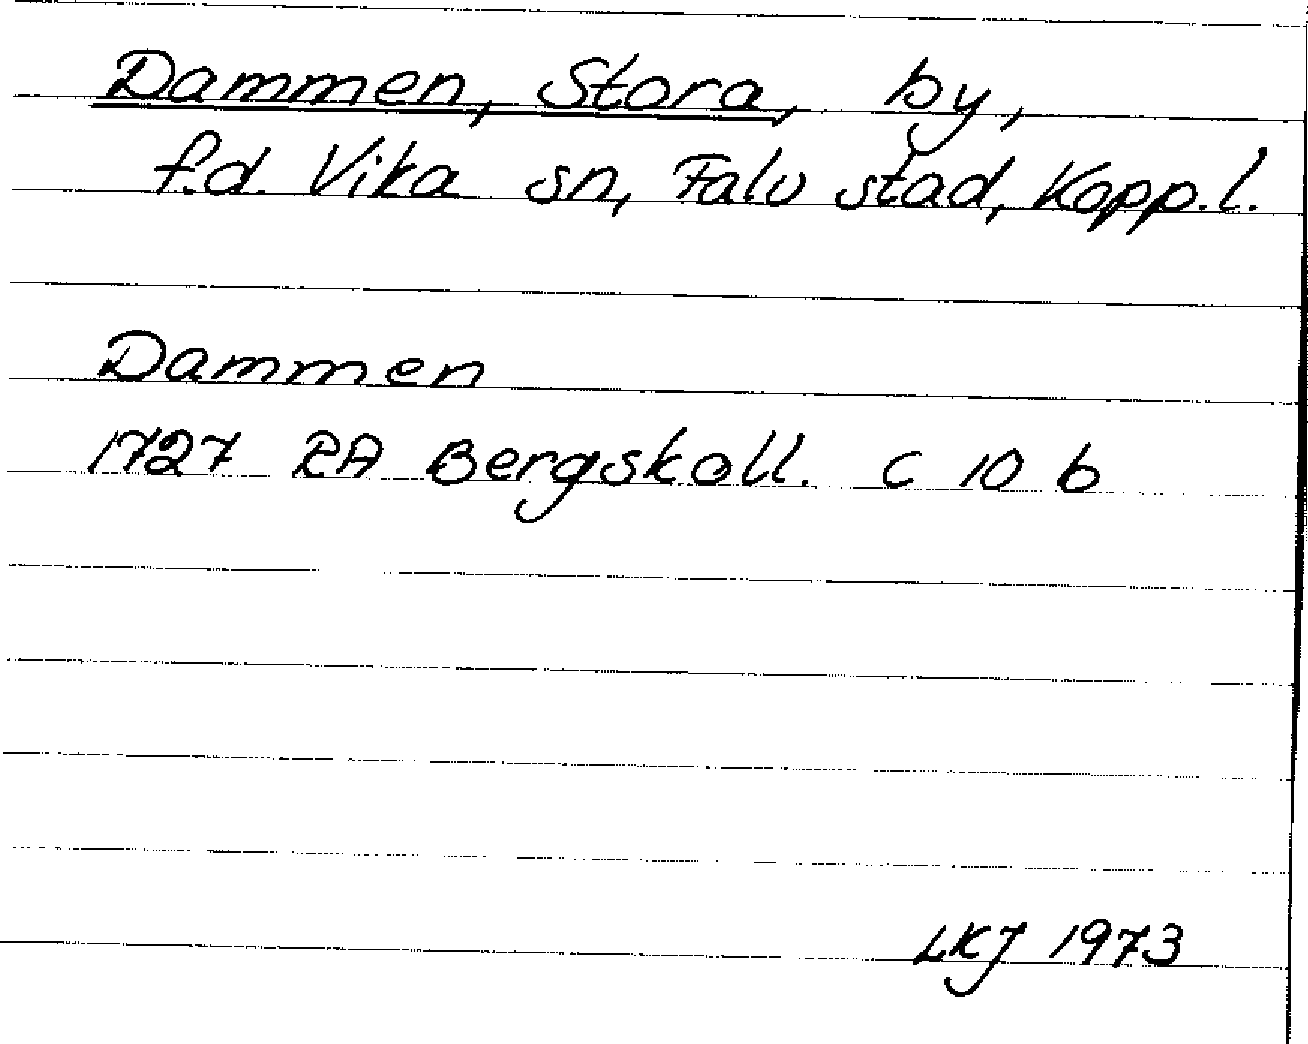 Dammen, Stora, by,
f.d. Vika sn, Falu stad, Kopp.l.
Dammen
1727 RA Bergskoll. C 10 b
LKJ 1973